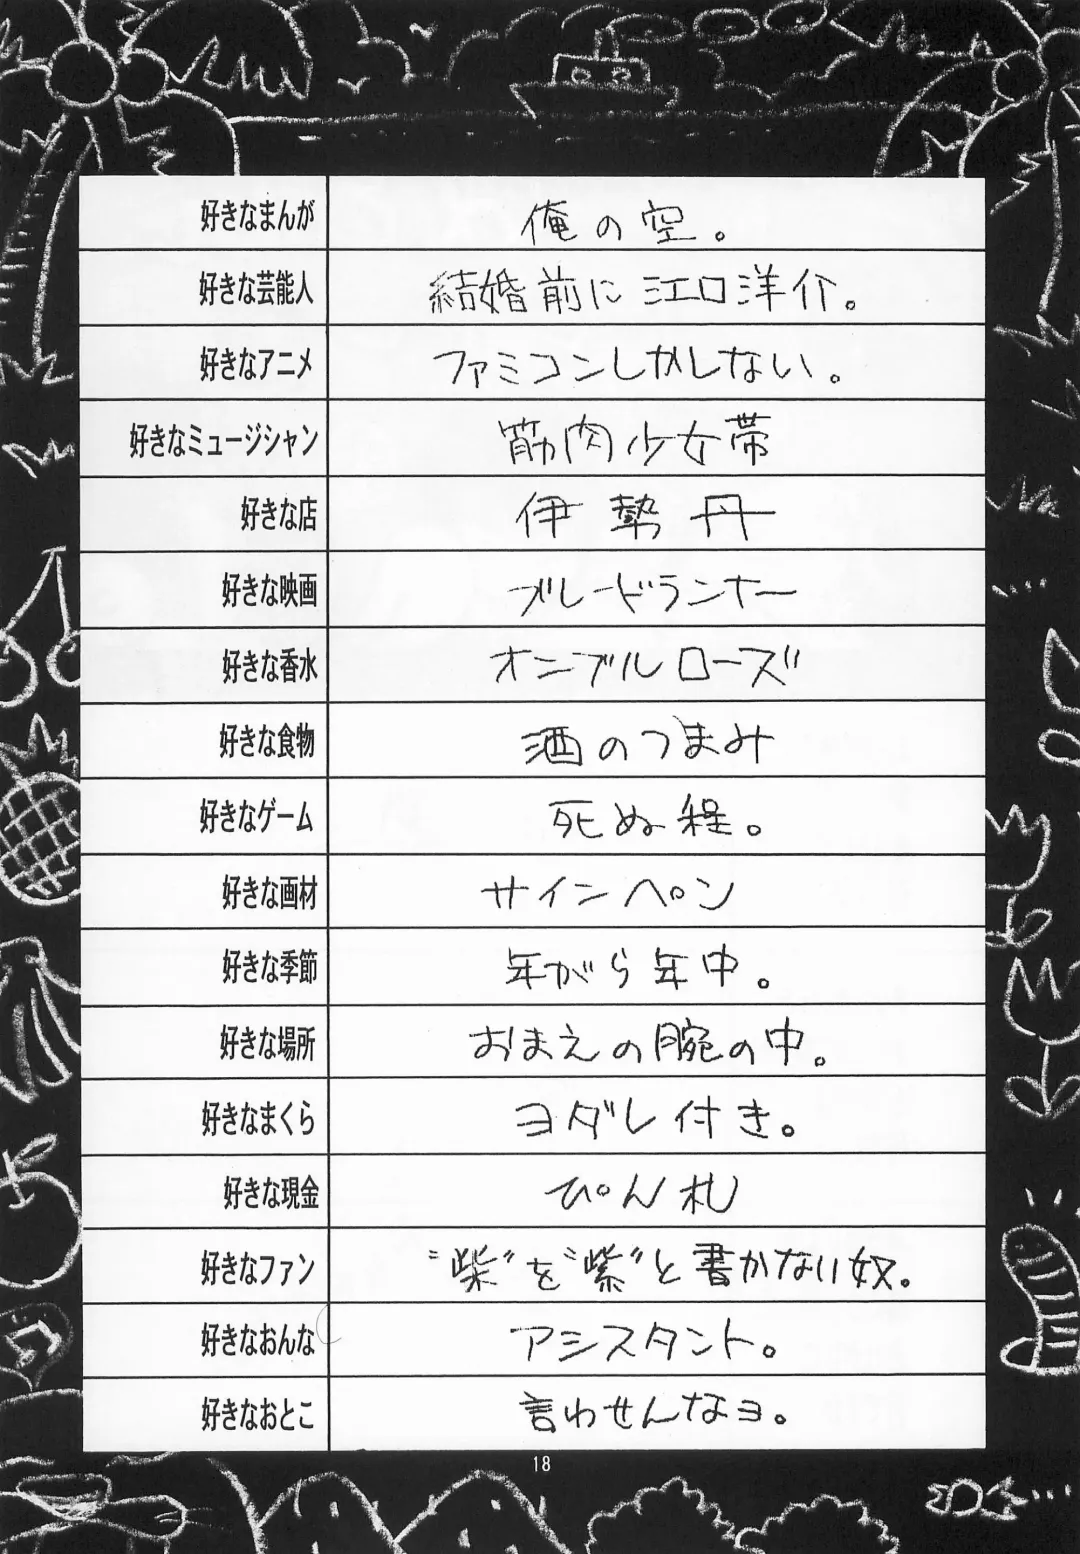 好きなまんが 俺の空。
好きな芸能人 結婚前に江口洋介。
好きなアニメ ファミコンしかしない。
好きなミュージシャン 筋肉少女帯
好きな店 伊勢丹
好きな映画 ブレードランナー
好きな香水 オンブルローズ
好きな食物 酒のつまみ
好きなゲーム 死ぬ程。
好きな画材 サインペン
好きな季節 年がら年中。
好きな場所 おまえの腕の中。
好きなまくら ヨダレ付き。
好きな現金 ぴん札
好きなファン "柴"を"紫"と書かない奴。
好きなおんな アシスタント。
好きなおとこ 言わせんなョ。
18